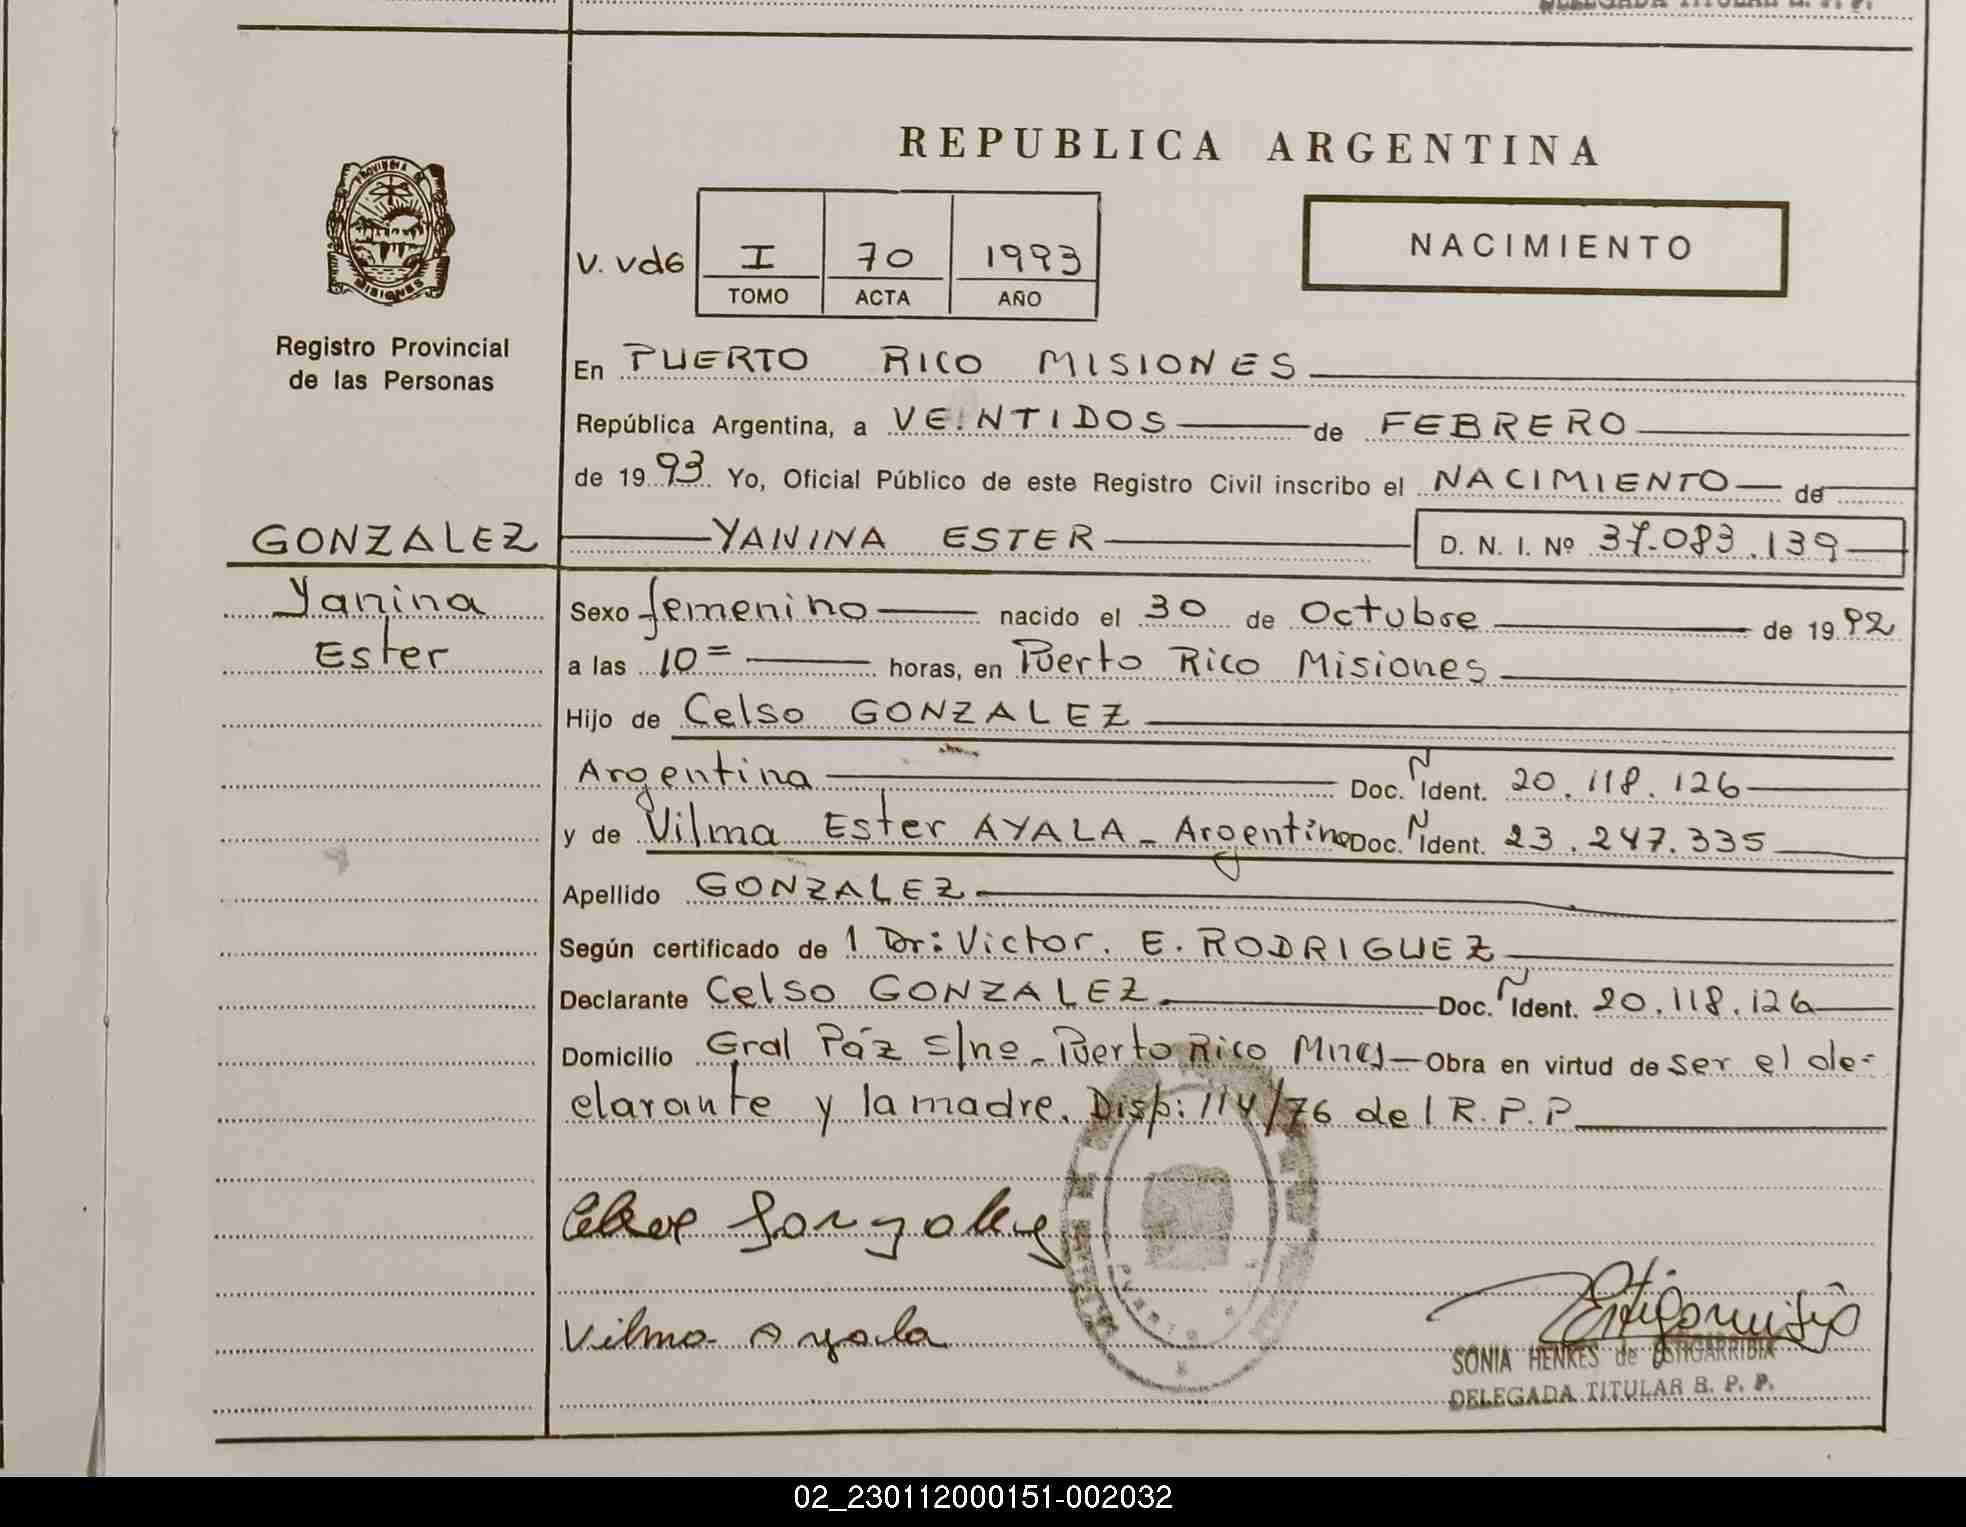 REPUBLICA ARGENTINA
V. Vd6 I 70 1993
TOMO ACTA AÑO
NACIMIENTO
PROVINCIA DE MISIONES
Registro Provincial
de las Personas
En PUERTO RICO MISIONES
República Argentina, a VEINTIDOS de FEBRERO
de 1993 Yo, Oficial Público de este Registro Civil inscribo el NACIMIENTO de
GONZALEZ YANINA ESTER D. N. I. Nº 37.083.139
Yanina
Ester
Sexo femenino nacido el 30 de Octubre de 1992
a las 10= horas, en Puerto Rico Misiones
Hijo de Celso GONZALEZ
Argentina Doc. N Ident. 20.118.126
y de Vilma Ester AYALA - Argentina Doc. N Ident. 23.247.335
Apellido GONZALEZ
Según certificado de 1 Dr: Victor. E. RODRIGUEZ
Declarante Celso GONZALEZ Doc. N Ident. 20.118.126
Domicilio Gral Páz S/nº - Puerto Rico Mnes - Obra en virtud de ser el de-
clarante y la madre. Disp: 114/76 del R.P.P
Celso Gonzalez
Vilma Ayala
SONIA HENKES de ESTIGARRIBIA
DELEGADA TITULAR R. P. P.
02_230112000151-002032